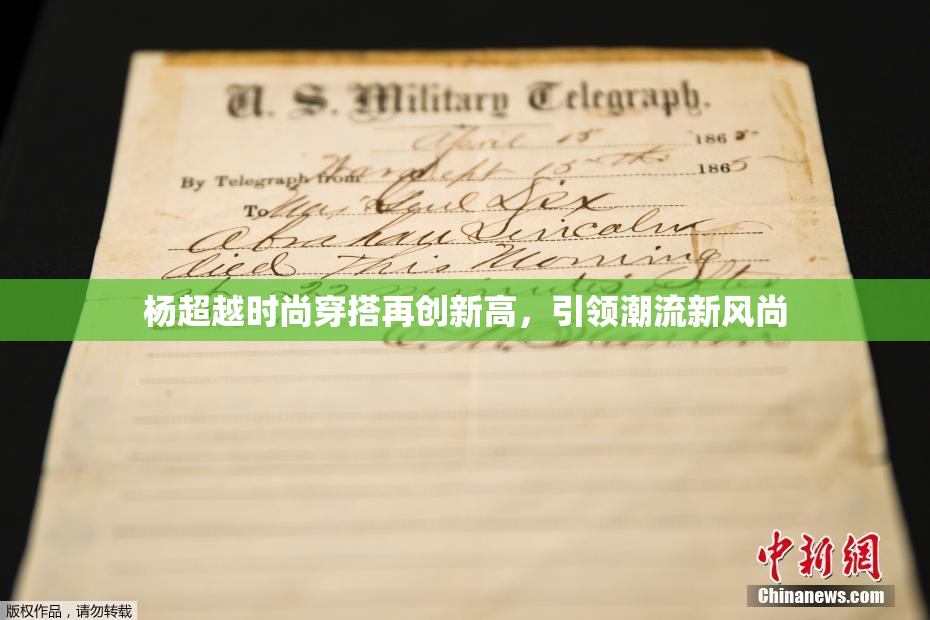 U. S. Military Telegraph.
April 15 1865
By Telegraph from War Dept 15th 1865
To Maj Genl Dix
Abraham Lincoln
died This Morning
22 minutes after
杨超越时尚穿搭再创新高，引领潮流新风尚
E. M. Stanton
中新网
Chinanews.com
版权作品，请勿转载